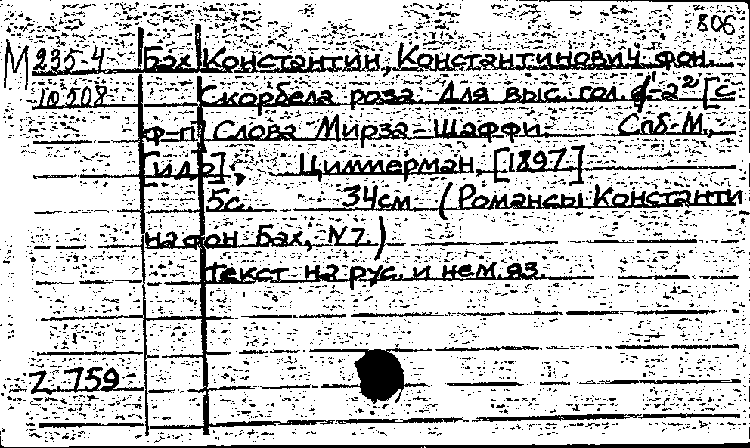 806
М 235-4 Бах Константин, Константинович фон.
10208 Скорбела роза. Для выс. гол. d'-a² [с
ф-п] Слова Мирза-Шаффи. Спб-М.,
[и др.]., Циммерман, [1897.]
5с. 34см (Романсы Константи
на фон Бах, N7.)
Текст на рус. и нем. яз.
Z. 759